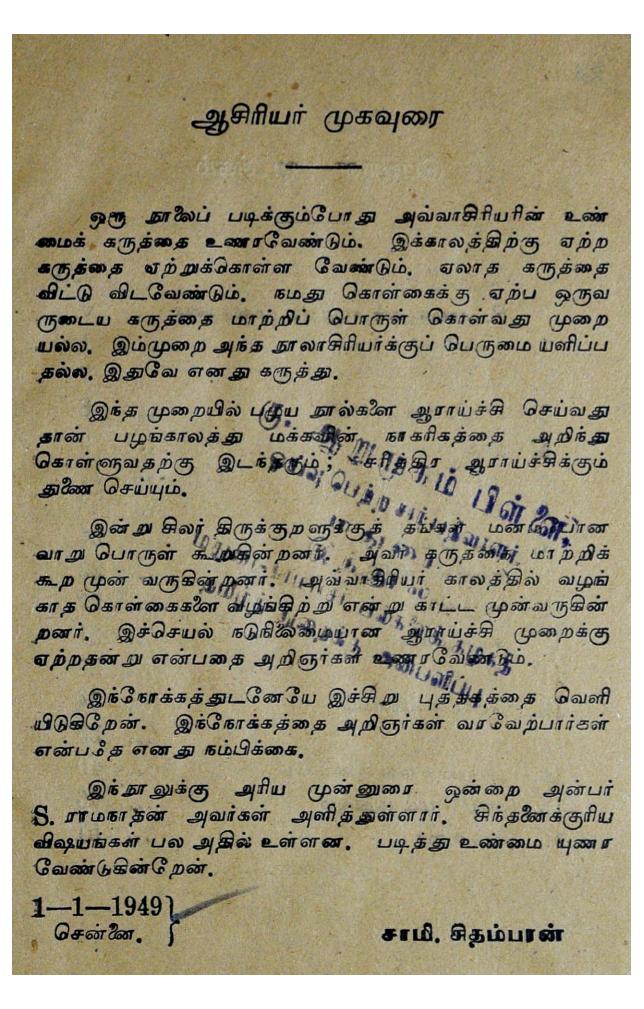 ஆசிரியர் முகவுரை
ஒரு நூலைப் படிக்கும்போது அவ்வாசிரியரின் உண்
மைக் கருத்தை உணரவேண்டும். இக்காலத்திற்கு ஏற்ற
கருத்தை ஏற்றுக்கொள்ள வேண்டும். ஏலாத கருத்தை
விட்டு விடவேண்டும். நமது கொள்கைக்கு ஏற்ப ஒருவ
ருடைய கருத்தை மாற்றிப் பொருள் கொள்வது முறை
யல்ல. இம்முறை அந்த நூலாசிரியர்க்குப் பெருமை யளிப்ப
தல்ல. இதுவே எனது கருத்து.
இந்த முறையில் பழைய நூல்களை ஆராய்ச்சி செய்வது
தான் பழங்காலத்து மக்களின் நாகரிகத்தை அறிந்து
கொள்ளுவதற்கு இடந்தரும்; சரித்திர ஆராய்ச்சிக்கும்
துணை செய்யும்.
பிள்ளை,
இன்று சிலர் திருக்குறளுக்குத் தங்கள் மனம்போன
வாறு பொருள் கூறுகின்றனர். அவர் கருத்தை மாற்றிக்
கூற முன் வருகின்றனர். அவ்வாசிரியர் காலத்தில் வழங்
காத கொள்கைகளை வழங்கிற்று என்று காட்ட முன்வருகின்
றனர். இச்செயல் நடுநிலைமையான ஆராய்ச்சி முறைக்கு
ஏற்றதன்று என்பதை அறிஞர்கள் உணரவேண்டும்.
இந்நோக்கத்துடனேயே இச்சிறு புத்தகத்தை வெளி
யிடுகிறேன். இந்நோக்கத்தை அறிஞர்கள் வரவேற்பார்கள்
என்பதே எனது நம்பிக்கை.
இந்நூலுக்கு அரிய முன்னுரை ஒன்றை அன்பர்
S. ராமநாதன் அவர்கள் அளித்துள்ளார். சிந்தனைக்குரிய
விஷயங்கள் பல அதில் உள்ளன. படித்து உண்மை யுணர
வேண்டுகின்றேன்.
1—1—1949
சென்னை.
சாமி. சிதம்பரன்